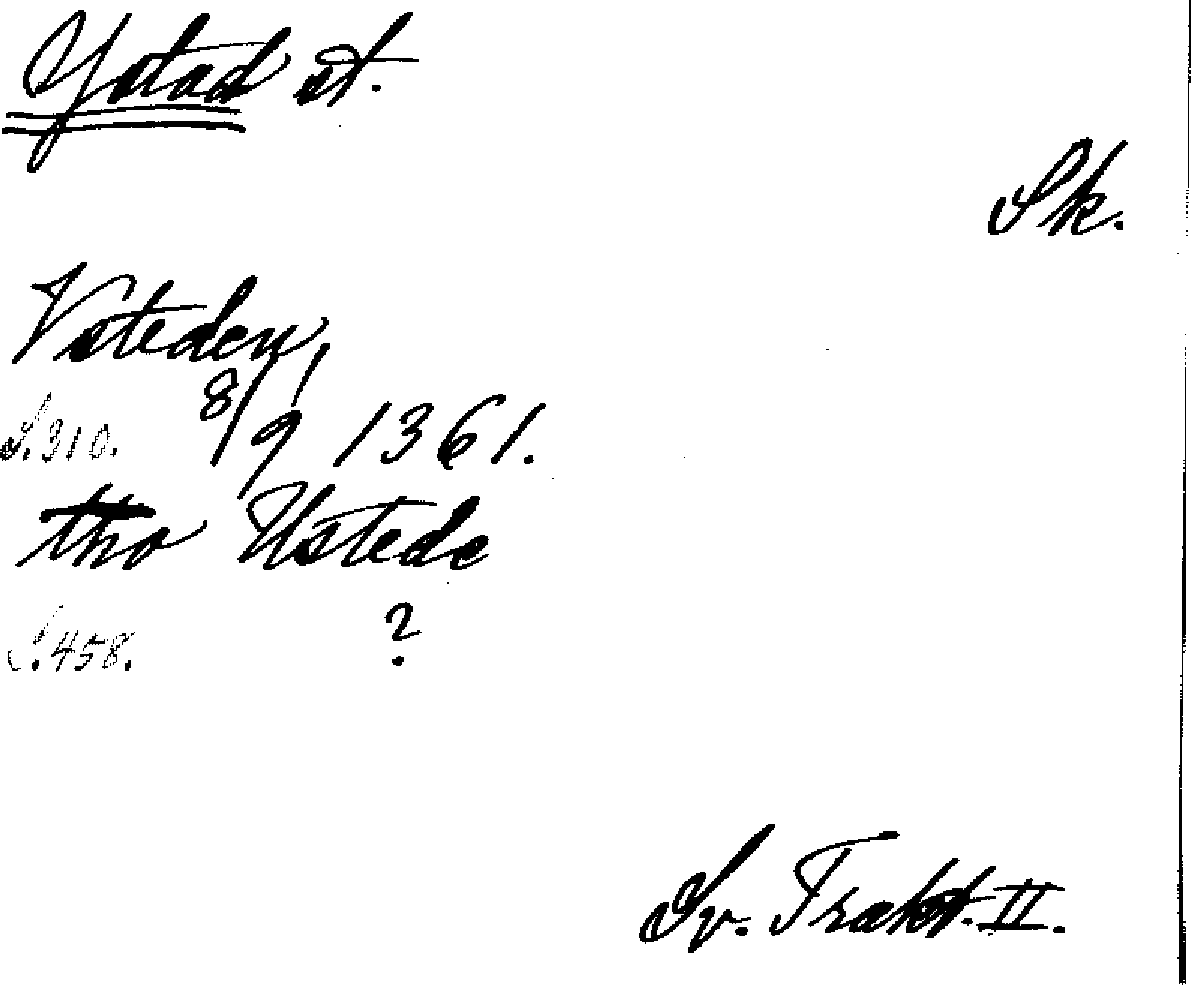 Ystad st.
Sk.
Vsteden,
S. 310. 8/9 1361.
tho Ustede
S. 458. ?
Sv. Trakt. II.